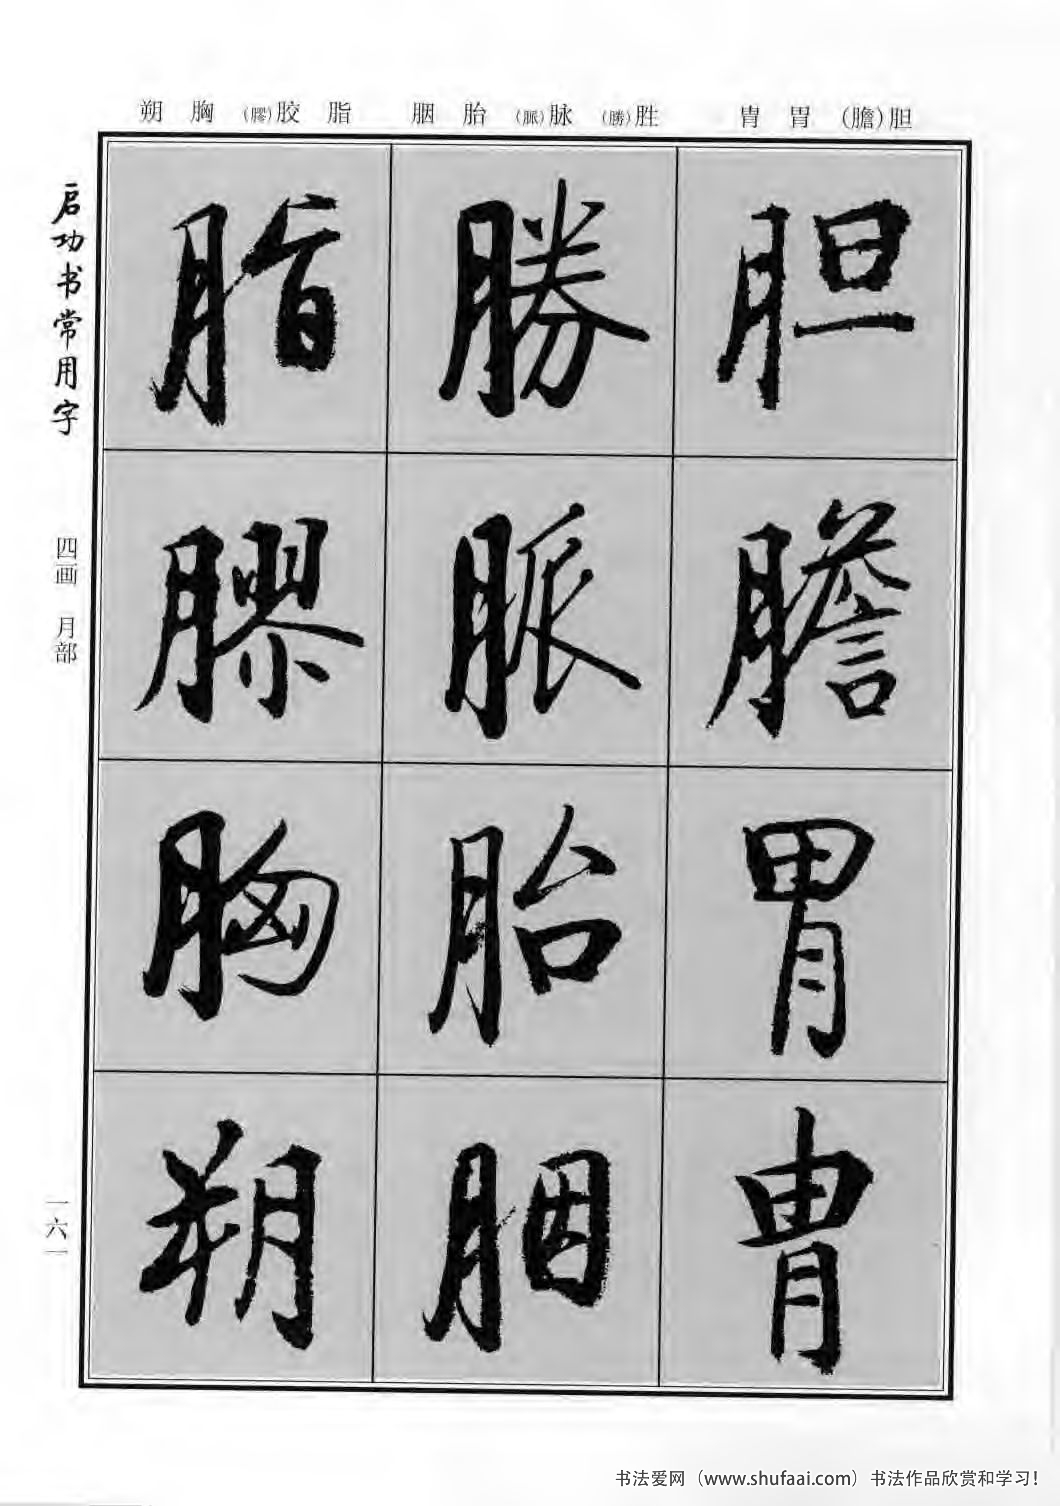 胆(膽) 胃 胄
胜(勝) 脉(脈) 胎 胭
脂 胶(膠) 胸 朔
胆
膽
胃
胄
勝
脈
胎
胭
脂
膠
胸
朔
启功书常用字
四画 月部
一六一
书法爱网（www.shufaai.com）书法作品欣赏和学习！